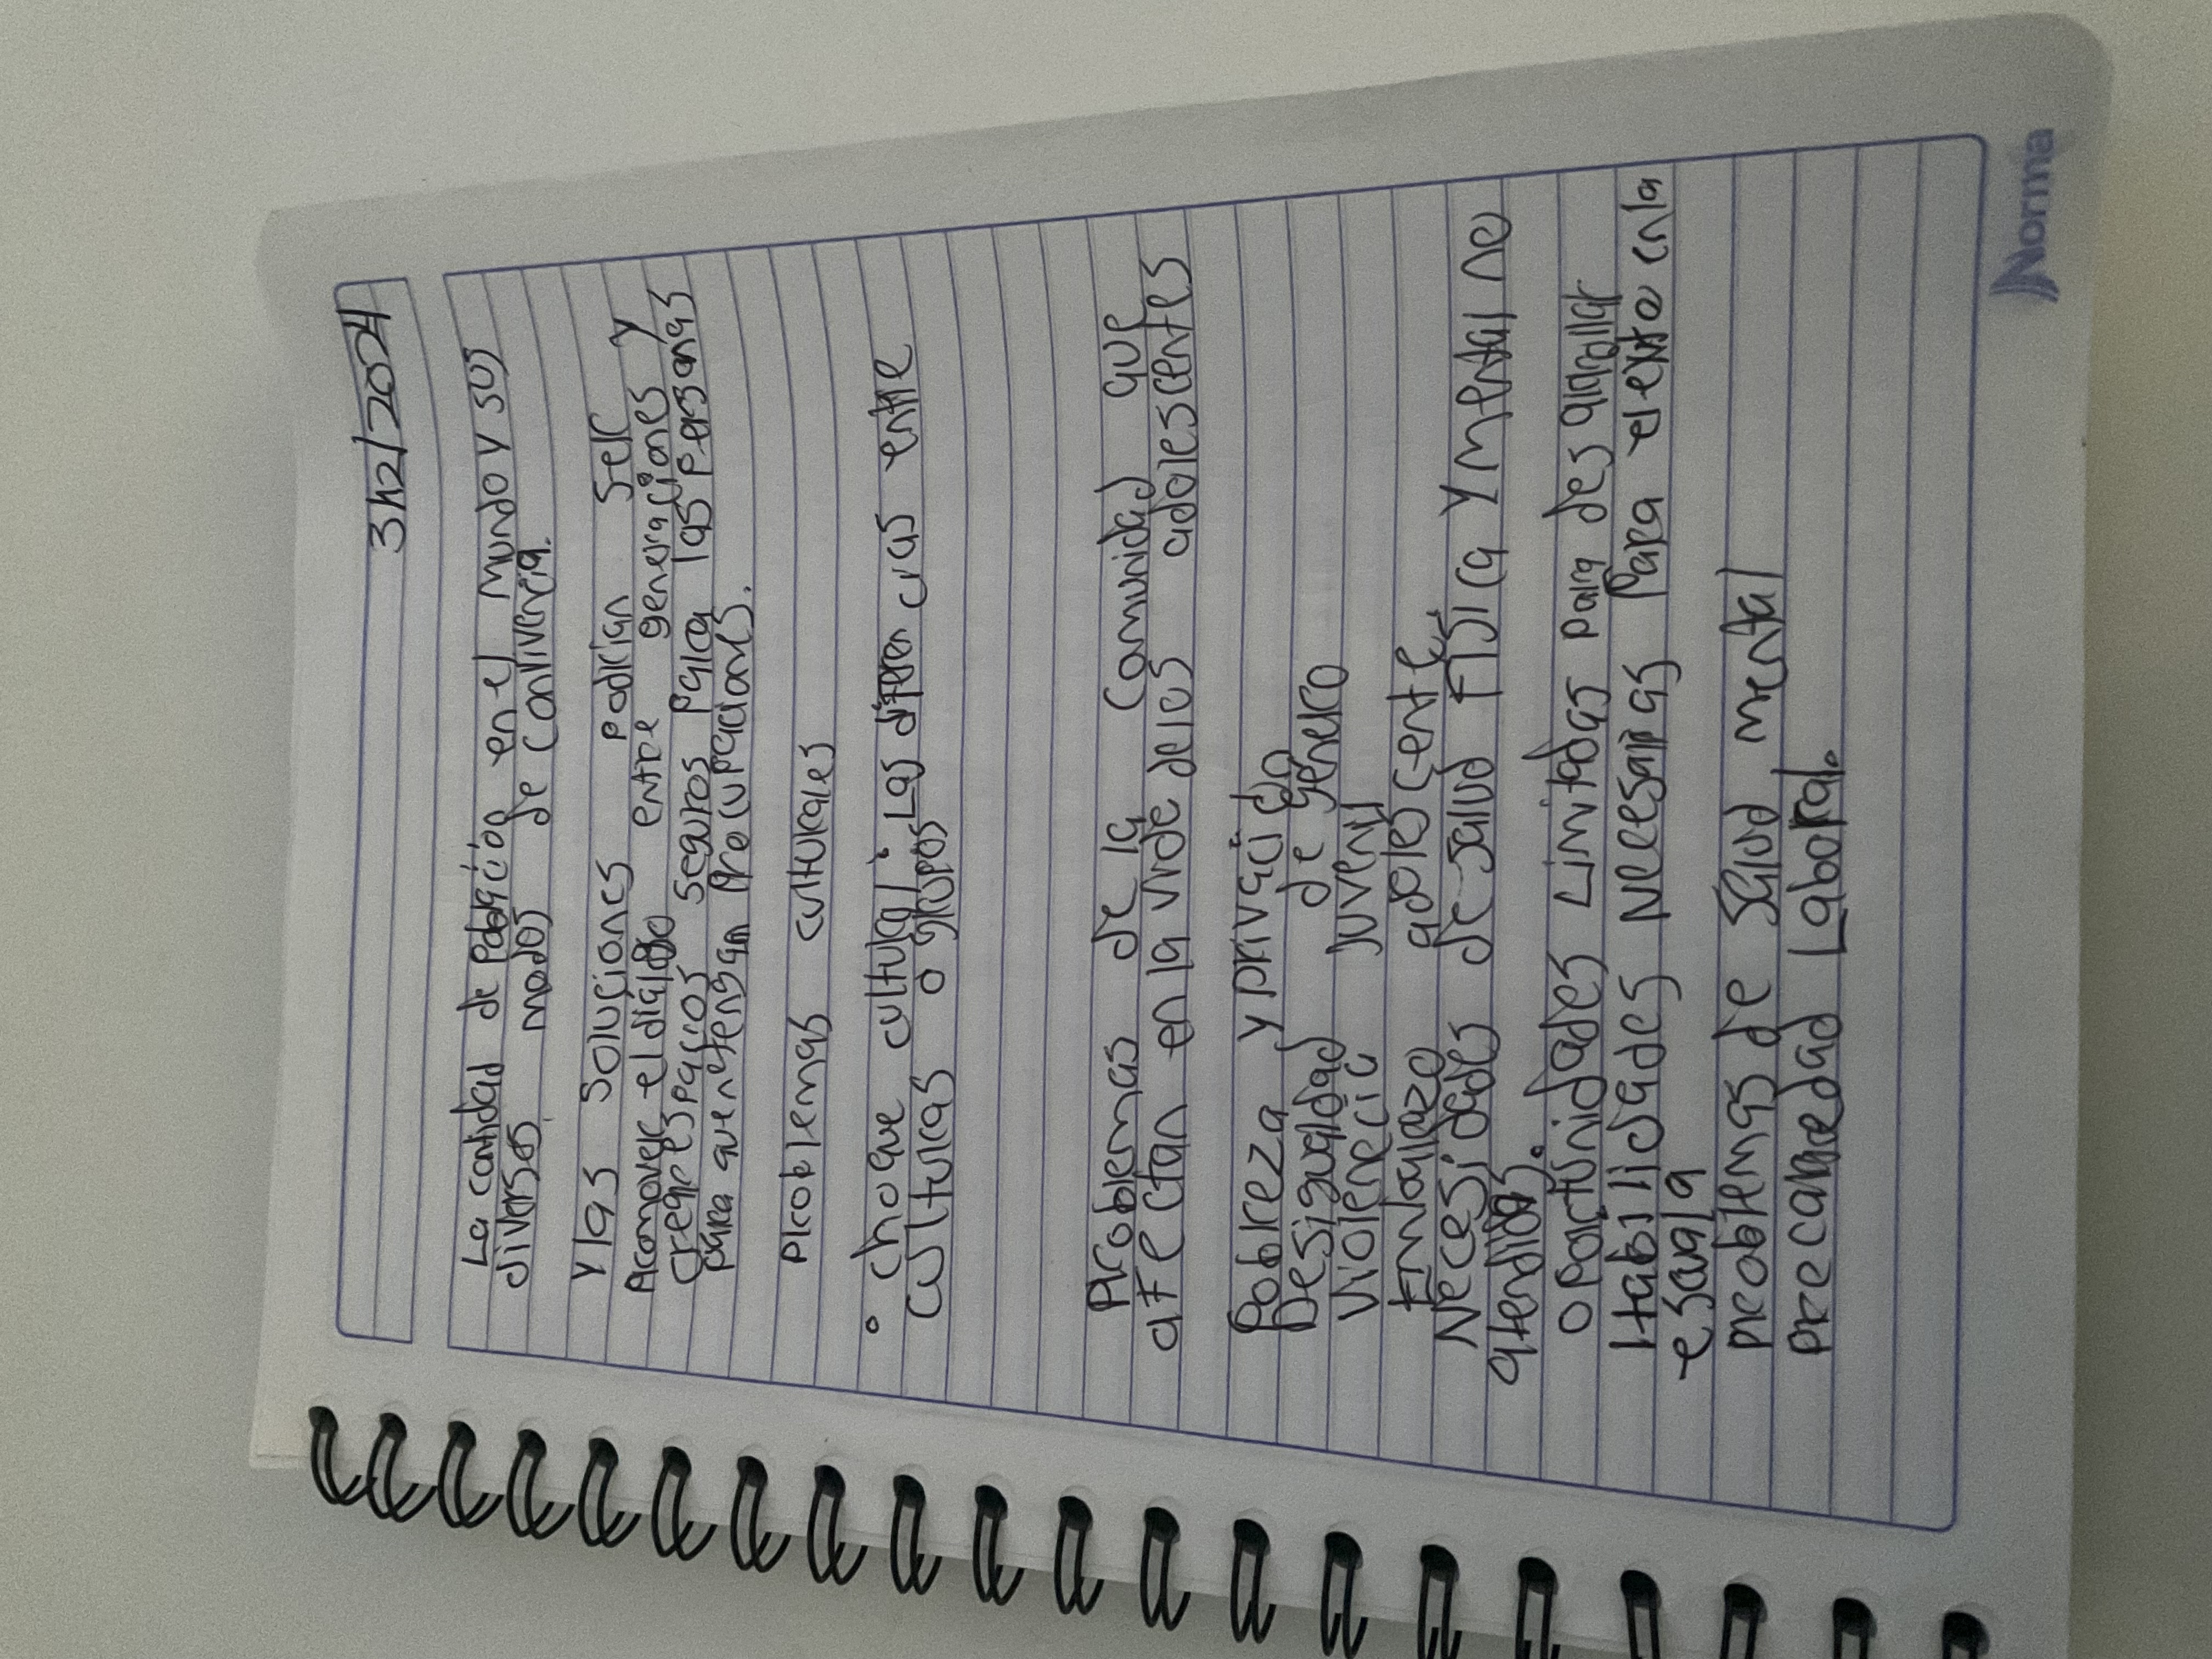 3/12/2024
La cantidad de población en el mundo y sus
diversos modos de convivencia.
Y las soluciones podrian ser
Promover el diálogo entre generaciones y
Crear espacios seguros para las personas
para que no tengan preocupaciones.
Problemas culturales
• Choque cultural: Las diferencias entre
culturas o grupos
Problemas de la comunidad que
afectan en la vide delos adolescentes
Pobreza y privació
Desigualdad de género
Violenecia juvenil
Embarazo adolescente
Necesidades de salud Fisica y mental no
atendidas.
oportunidades Limitadas para desarrollar
Habilidades necesarias para el exito en la
esuala
problemas de salud mental
precariedad Laboral.
Norma